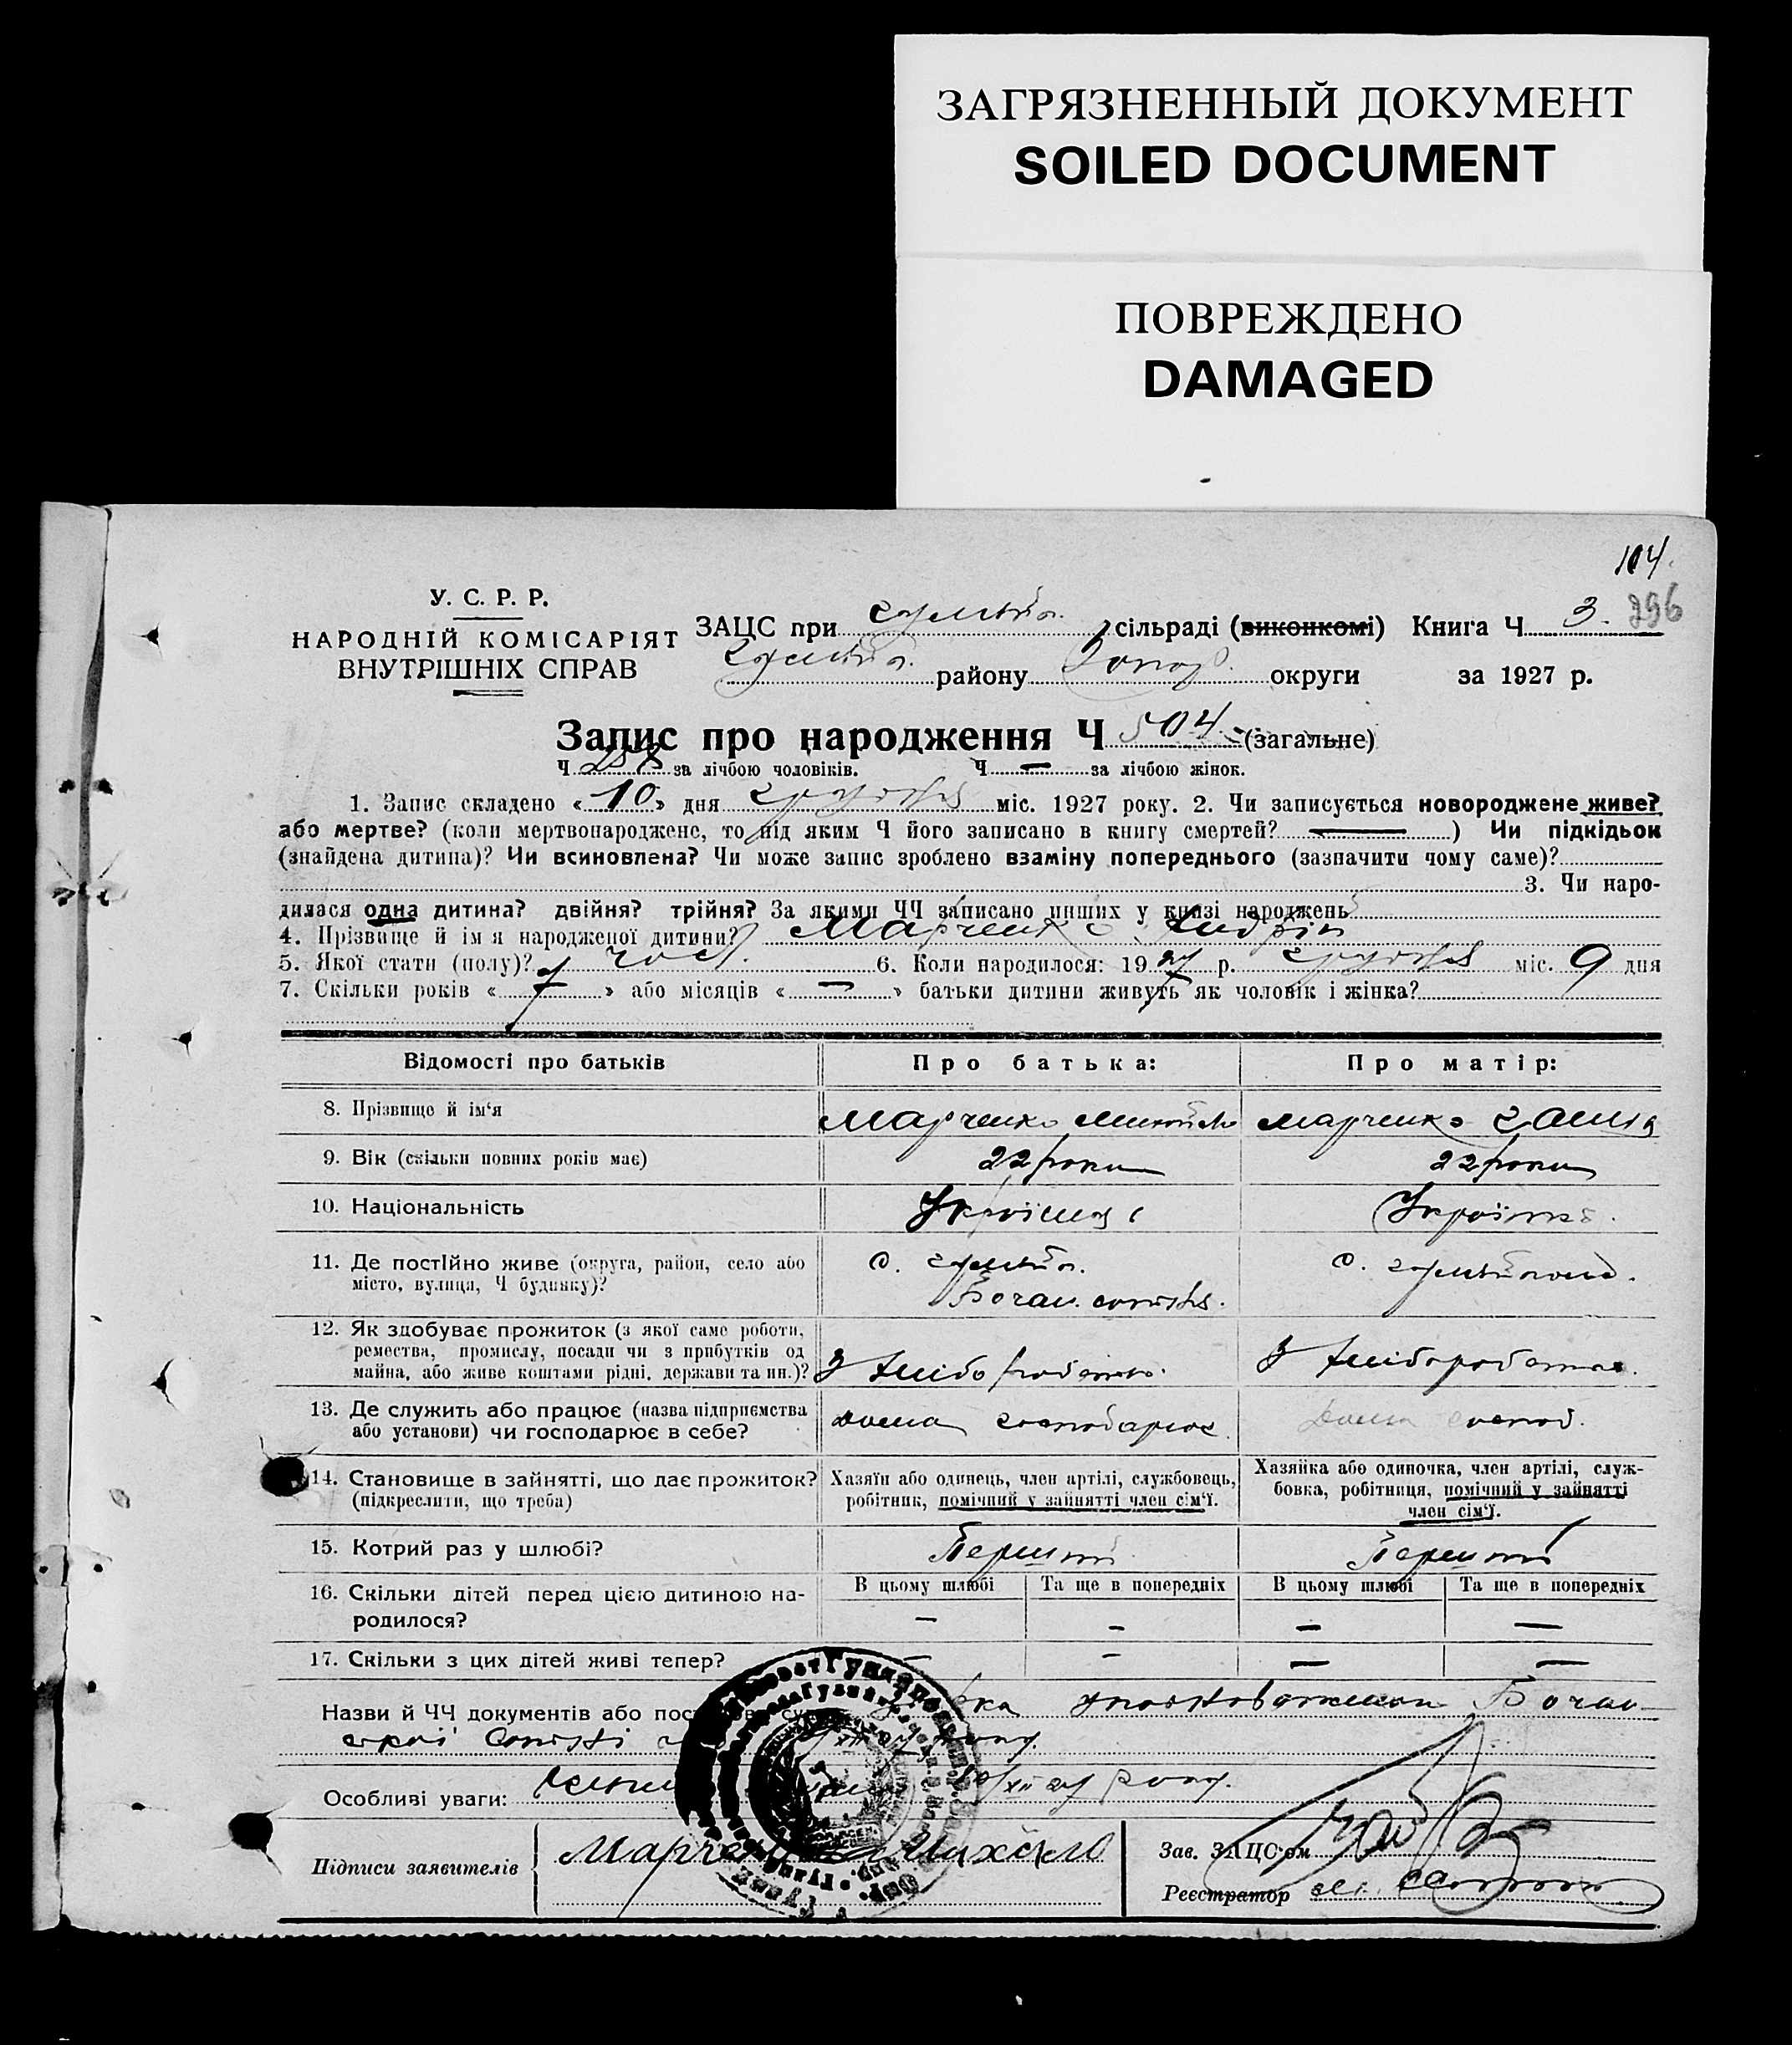 ЗАГРЯЗНЕННЫЙ ДОКУМЕНТ
SOILED DOCUMENT
ПОВРЕЖДЕНО
DAMAGED
104.
У. С. Р. Р.
НАРОДНІЙ КОМІСАРІЯТ
ВНУТРІШНІХ СПРАВ
ЗАЦС при сільраді (виконкомі) Книга Ч 3. 296
району округи за 1927 р.
Запис про народження Ч 504. (загальне)
Ч 258 за лічбою чоловіків. Ч — за лічбою жінок.
1. Запис складено « 10 » дня грудня міс. 1927 року. 2. Чи записується новороджене живе?
або мертве? (коли мертвонароджене, то під яким Ч його записано в книгу смертей? — ) Чи підкідьок
(знайдена дитина)? Чи всиновлена? Чи може запис зроблено взаміну попереднього (зазначити чому саме)?
3. Чи наро-
дилася одна дитина? двійня? трійня? За якими ЧЧ записано инших у книзі народжень
4. Прізвище й ім'я народженої дитини? Марченко Андрій
5. Якої стати (полу)? чол. 6. Коли народилося: 1927 р. грудня міс. 9 дня
7. Скільки років « » або місяців « — » батьки дитини живуть як чоловік і жінка?
Відомості про батьків Про батька: Про матір:
8. Прізвище й ім'я Марченко Михайло Марченко Ганна
9. Вік (скільки повних років має) 22 роки 22 роки
10. Національність Українец Українка.
11. Де постійно живе (округа, район, село або
місто, вулиця, Ч будинку)?
12. Як здобуває прожиток (з якої саме роботи,
ремества, промислу, посади чи з прибутків од
майна, або живе коштами рідні, держави та ин.)? З хліборобства. З хліборобства.
13. Де служить або працює (назва підприємства
або установи) чи господарює в себе? дома господарює. дома господ.
14. Становище в зайнятті, що дає прожиток?
(підкреслити, що треба)
Хазяїн або одинець, член артілі, службовець,
робітник, помічний у зайнятті член сім'ї.
Хазяйка або одиночка, член артілі, служ-
бовка, робітниця, помічний у зайнятті
член сім'ї.
15. Котрий раз у шлюбі? Перший Перший
16. Скільки дітей перед цією дитиною на-
родилося?
В цьому шлюбі Та ще в попередніх В цьому шлюбі Та ще в попередніх
— — — —
17. Скільки з цих дітей живі тепер? — — — —
Назви й ЧЧ документів або уповноваженого
Особливі уваги: року.
Підписи заявителів Марченко Михайло
Зав. ЗАЦС'ом
Реєстратор